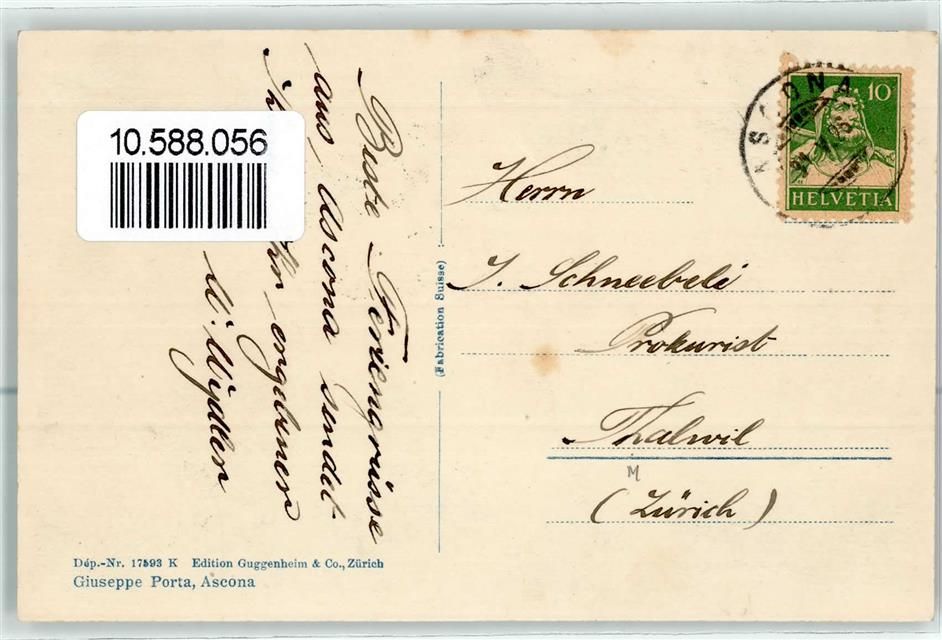 10.588.056
Beste Feriengrüsse
aus Ascona sendet
Ihr ergebener
W. Wydler
Herrn
J. Schneebeli
Prokurist
Thalwil
M
(Zürich)
ASCONA
10
HELVETIA
(Fabrication Suisse)
Dép.-Nr. 17593 K Edition Guggenheim & Co., Zürich
Giuseppe Porta, Ascona